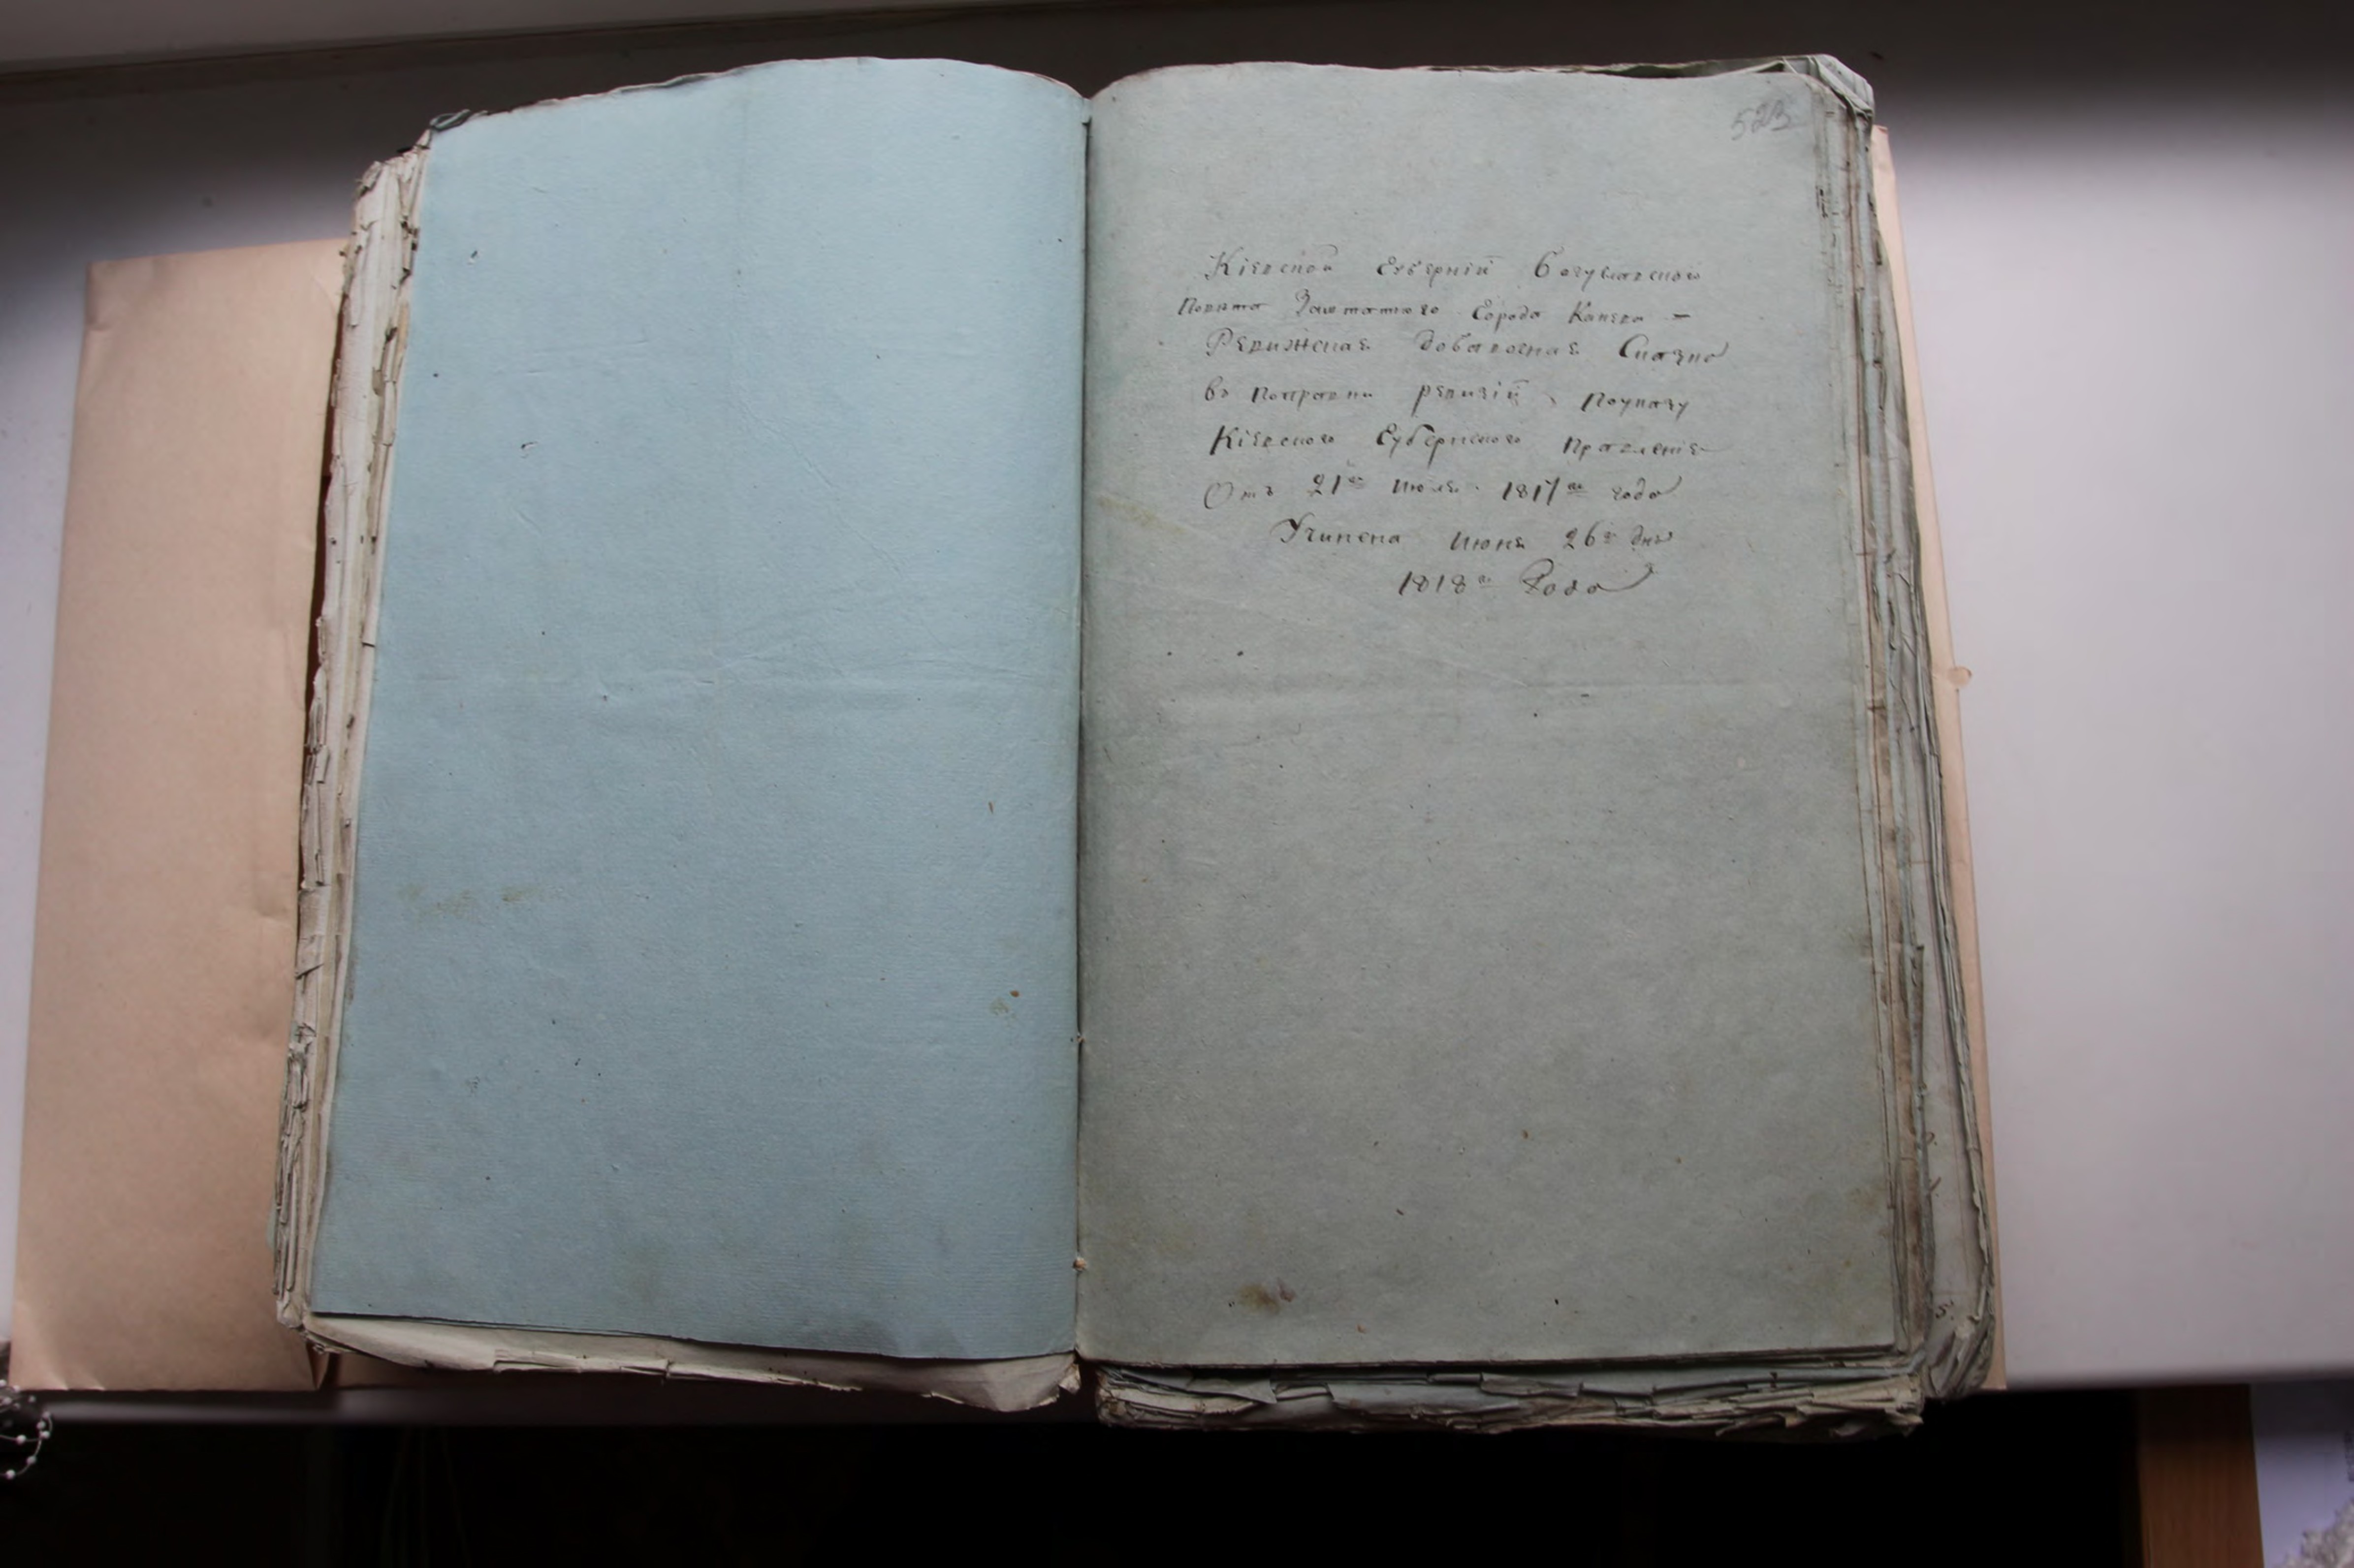 523
Кіевской Губерніи Богуславского
Повѣта Заштатного Города Канева =
Ревижская добавочная Сказка
въ поправки ревизіи, Поуказу
Кіевского Губернского Правленія
Отъ 21го Июля 1817го года
Учинена Июня 26го дня
1818го Года